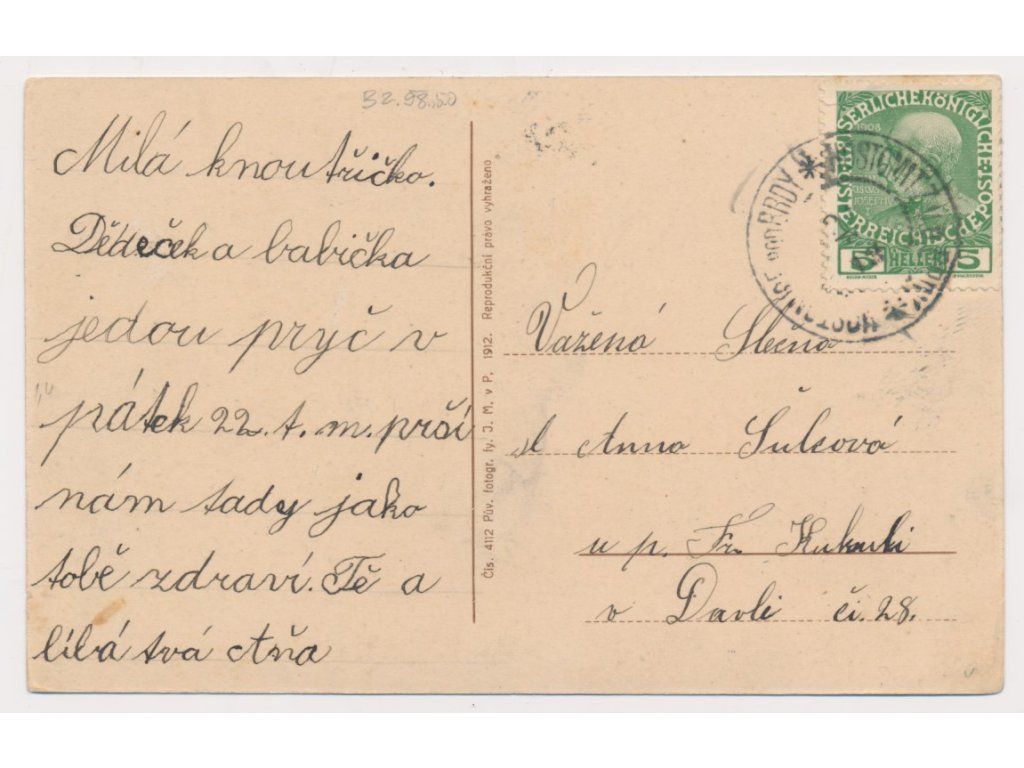 BZ.98.50
Milá knoutřičko.
Dědeček a babička
jedou pryč v
pátek 22. t. m. prší
nám tady jako
tobě zdraví. Tě a
líbá tvá Aňa
Čís. 4112 Pův. fotogr. fy. J. M. v P. 1912. Reprodukční právo vyhraženo
SERLICHE KÖNIGLICHE
1908
ÖSTERREICHISCHE POST
5 HELLER 5
HOSTOMITZ
HOSTOMICE POD BRDY
Vážená Slečna
sl Anna Šulcová
u p. Fr. Kukuli
v Davli či. 28.